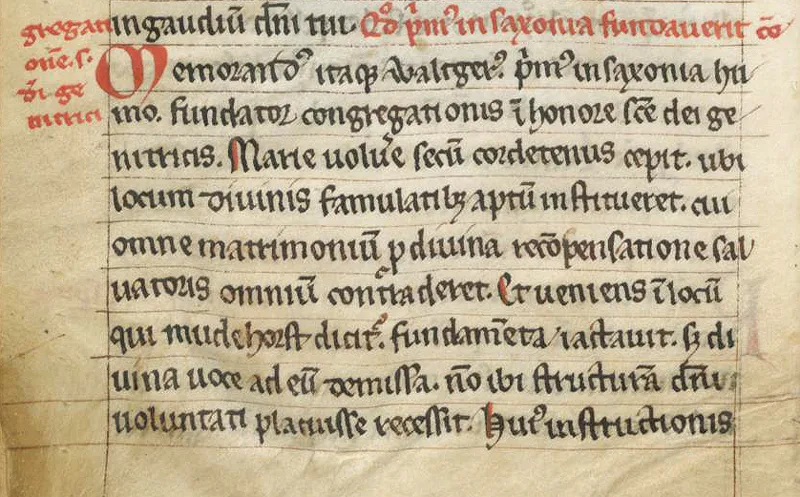 ingaudiū dn̄i tui. Qđ p̄mꝰ in saxonia fundauerit cō
gregati
onē. s.
đi ge
nitrici
Memorandꝰ itaqꝫ Waltgerꝰ. p̄mꝰ in saxonia hu
mo. fundator congregationis ī honore sc̄e dei ge
nitricis. Marie uolu͛e secū cordetenus cepit. ubi
locum diuinis famulatibꝫ aptū institueret. cui
omne matrimoniū ꝑ diuina recōpensatione sal
uatoris omniū contraderet. Et ueniens ī locū
qui mudehorst dicit᷑. fundam̄enta iactauit. sꝫ di
uina uoce ad eū demissa. nō ibi structurā dn̄i
uoluntati placuisse recessit. Huiꝰ instructionis